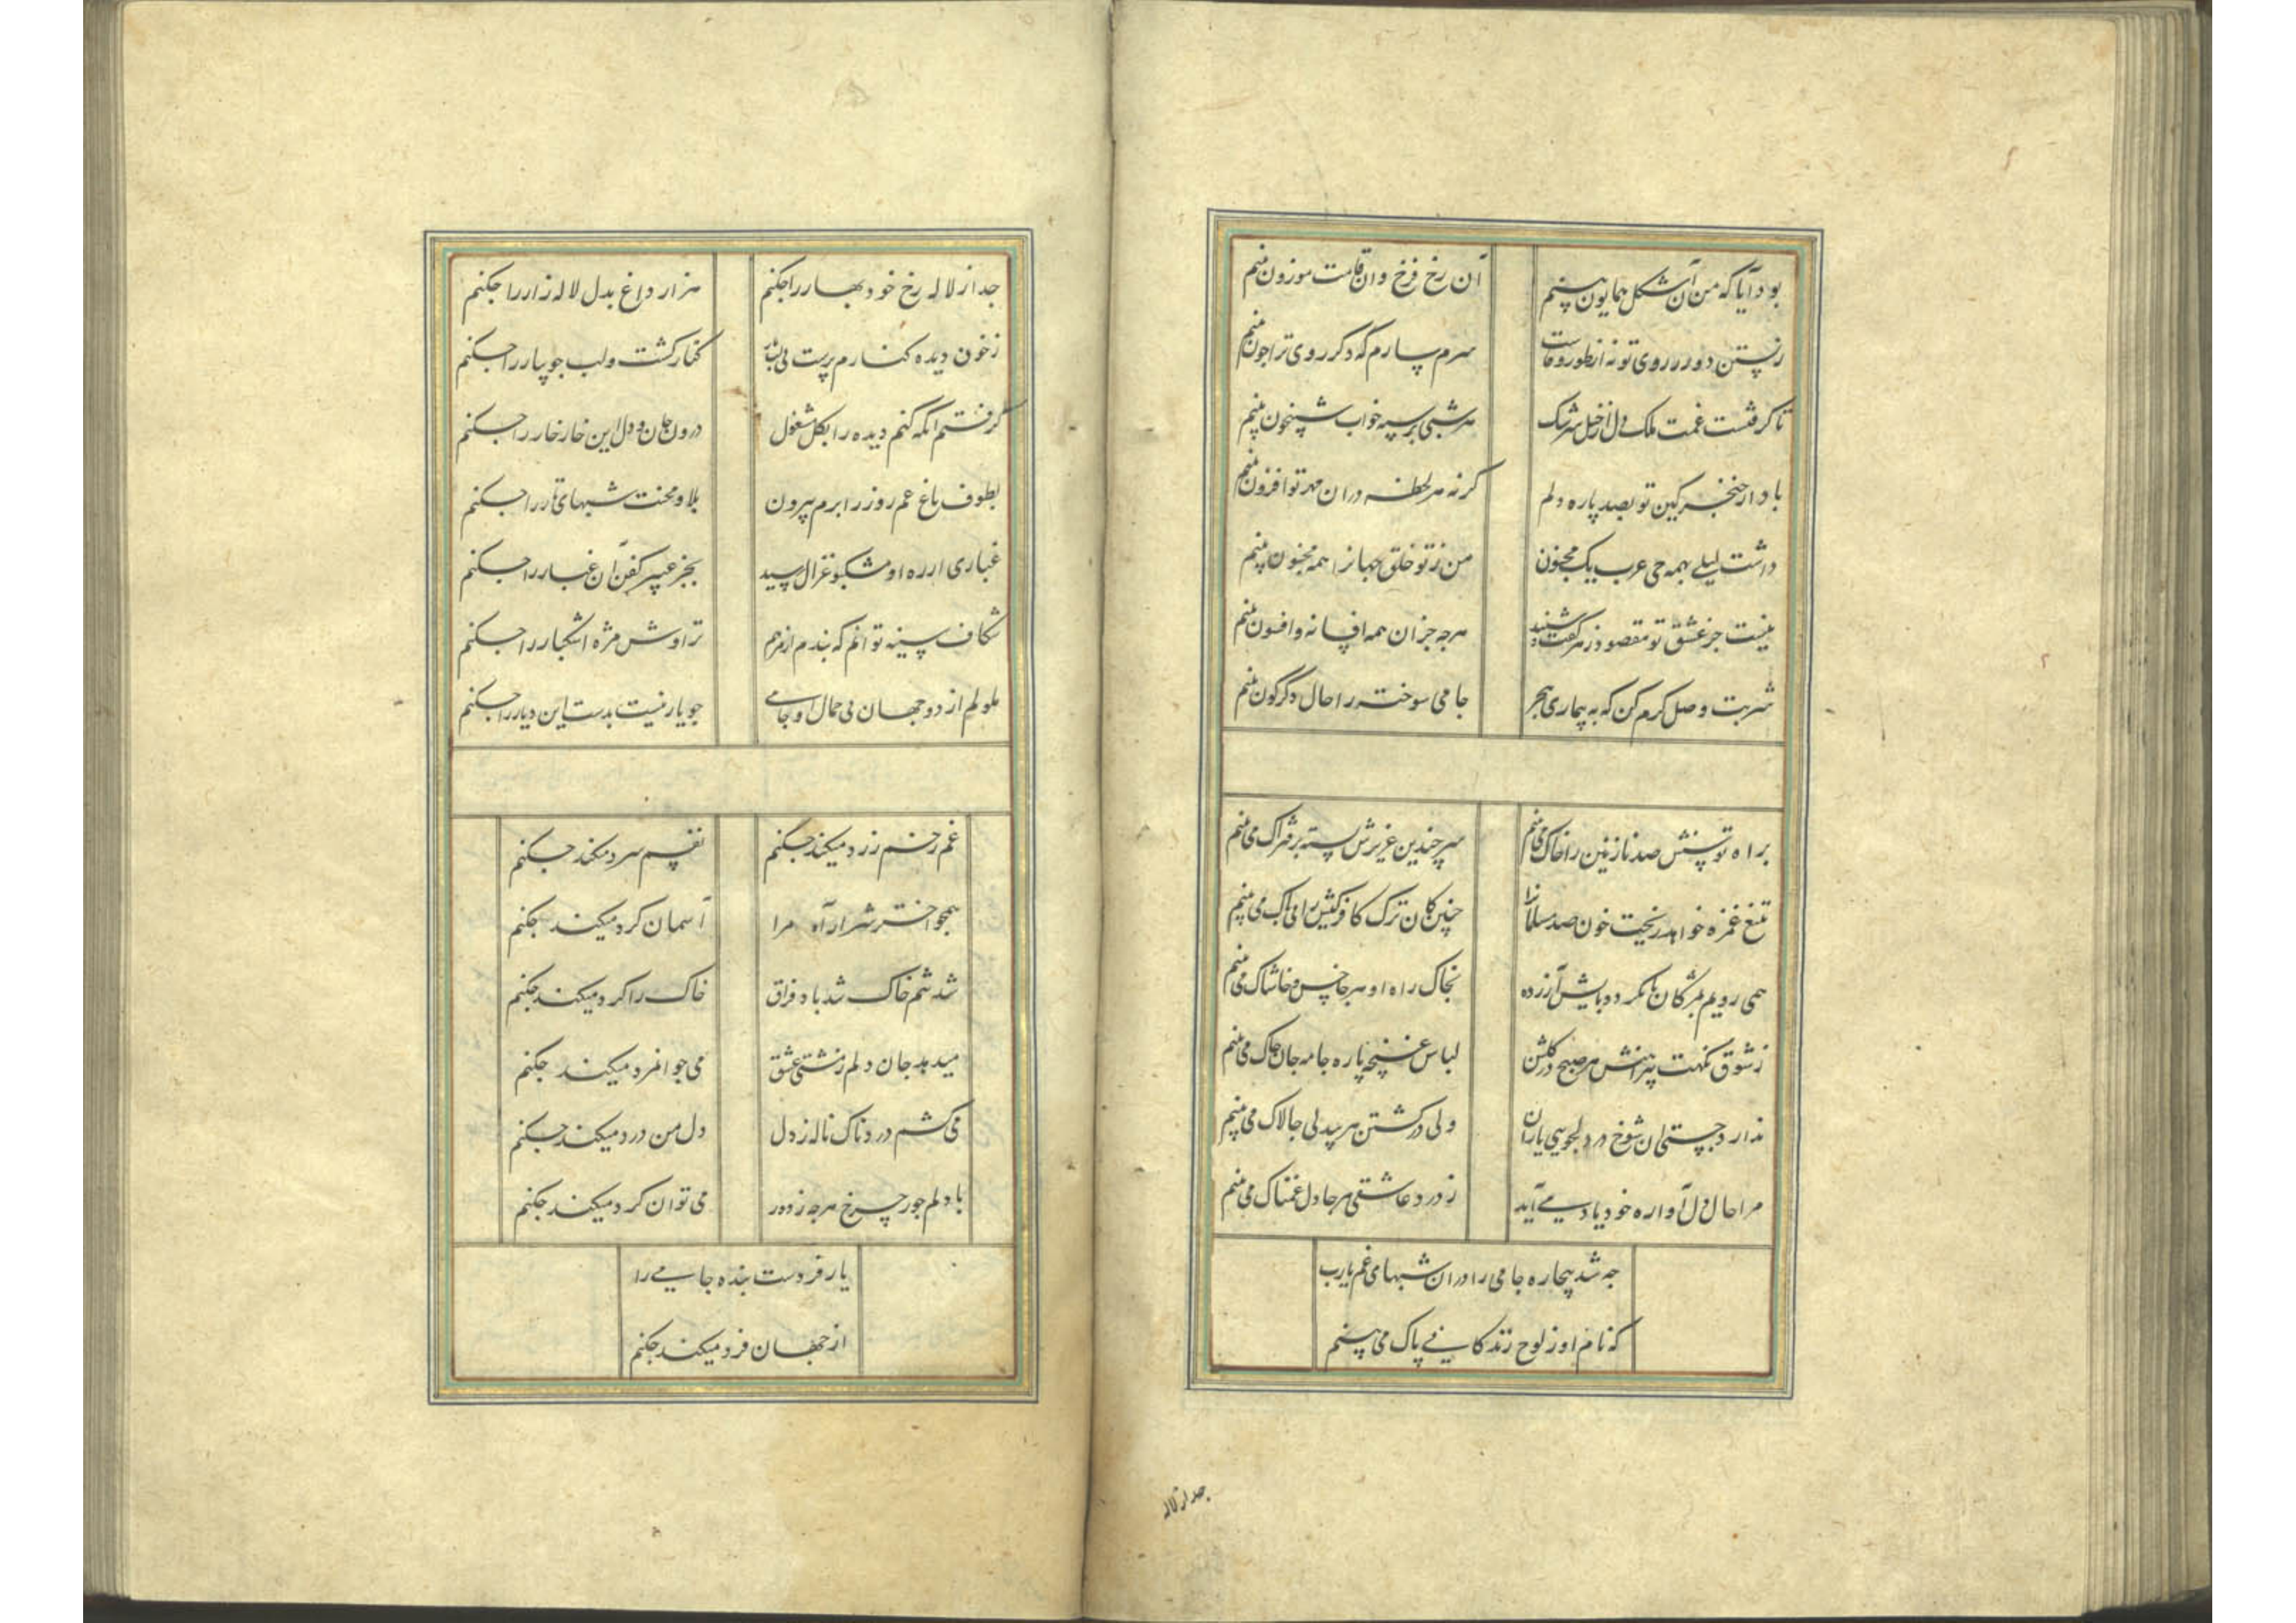 بود آیا که من آن شکل همایون بینم
آن رخ فرخ وان قامت موزون بینم
زیستن دور ز روی تو نه از طور وفاست
سرم بسارم که دکر روی ترا چون بینم
تا کرفتست غمت ملک دل از خیل سرشک
هر شبی بر سپه خواب شبیخون بینم
باد از خنجر کین تو بصد پاره دلم
کر نه هر لحظه دران مهر تو افزون بینم
داشت لیلی بهمه حی عرب یک مجنون
من ز تو خلق جهانرا همه مجنون بینم
نیست جز عشق تو مقصود ز هر کفت و شنید
هرچه جز آن همه افسانه و افسون بینم
شربت وصل کرم کن که به بیماری هجر
جامی سوخته را حال دکرکون بینم
براه توسنش صد نازنین را خاک می بینم
سر چندین عزیزش بسته بر فتراک می بینم
بتیغ غمزه خواهد ریخت خون صد مسلمانرا
چنین کان ترک کافر کیش را بی باک می بینم
همی روبم بمژکان تا نکردد پایش آزرده
بخاک راه او هر جا خس و خاشاک می بینم
ز شوق نکهت پیراهنش هر صبح در کلشن
لباس غنچه پاره جامه جان چاک می بینم
ندارد چستی آن شوخ در دلجویی یاران
ولی در کشتن هر بیدلی چالاک می بینم
مرا حال دل آواره خود یاد می آید
ز درد عاشقی هر جا دل غمناک می بینم
چه شد بیچاره جامی را دران شبهای غم یارب
که نام او ز لوح زندکانی پاک می بینم
جدا ز لاله
جدا ز لاله رخ خود بهار را چکنم
هزار داغ بدل لاله زار را چکنم
ز خون دیده کنارم پرست بی
کنار کشت و لب جویبار را چکنم
کرفتم آنکه کنم دیده را بکل مشغول
درون جان و دل این خار خار را چکنم
بطوف باغ غم روز را برم بیرون
بلا و محنت شبهای تار را چکنم
غباری از ره او مشکبو غزال سپید
بجز عبیر کفن آن غبار را چکنم
شکاف سینه توانم که بندم از مرهم
تراوش مژه اشکبار را چکنم
ملولم از دو جهان بی جمال او جامی
چو یار نیست بدست این دیار را چکنم
غم رخم زرد میکند چکنم
نفسم سرد میکند چکنم
همچو اختر شرار آه مرا
آسمان کرد میکند چکنم
شد تنم خاک شد باد فراق
خاک را کرد میکند چکنم
میدهد جان دلم ز مشتی عشق
می جوانمرد میکند چکنم
می کشم دردناک ناله ز دل
دل من درد میکند چکنم
با دلم جور چرخ هرچه ز دور
می توان کرد میکند چکنم
یار فردست بنده جامی را
از جهان فرد میکند چکنم